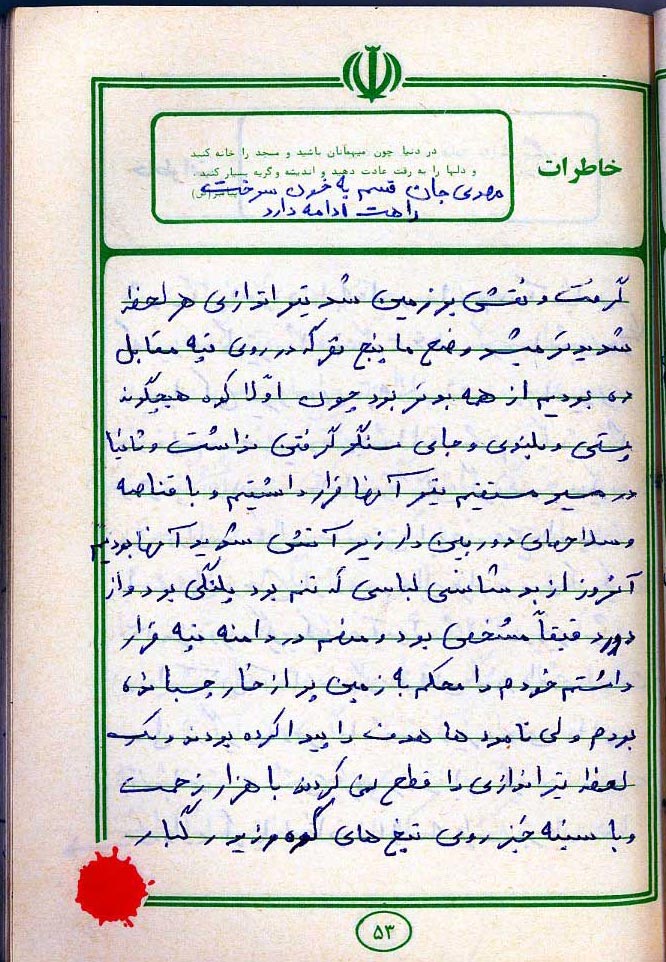 خاطرات
در دنیا چون میهمانان باشید و مسجد را خانه کنید
و دلها را به رقت عادت دهید و اندیشه و گریه بسیار کنید
مهدی جان قسم به خون سرخت
راهت ادامه دارد
گرفت و نقش بر زمین شد تیراندازی هر لحظه
شدیدتر میشد وضع ما پنج نفر که در روی تپه مقابل
ده بودیم از همه بدتر بود چون اولا کوه هیچگونه
پستی و بلندی و جای سنگر گرفتن نداشت و ثانیا
در مسیر مستقیم تیر آنها قرار داشتیم و با قناصه
و سلاحهای دوربین دار زیر آتش شدید آنها بودیم
آنروز از بد شانسی لباسی که تنم بود پلنگی بود و از
دور دقیقاً مشخص بود و منهم در دامنه تپه قرار
داشتم خودم را محکم به زمین پر از خار چسبانده
بودم ولی نامردها هدف را پیدا کرده بودند و یک
لحظه تیراندازی را قطع نمی کردند با هزار زحمت
و با سینه خیز روی تیغ های کوه و زیر رگبار
۵۳